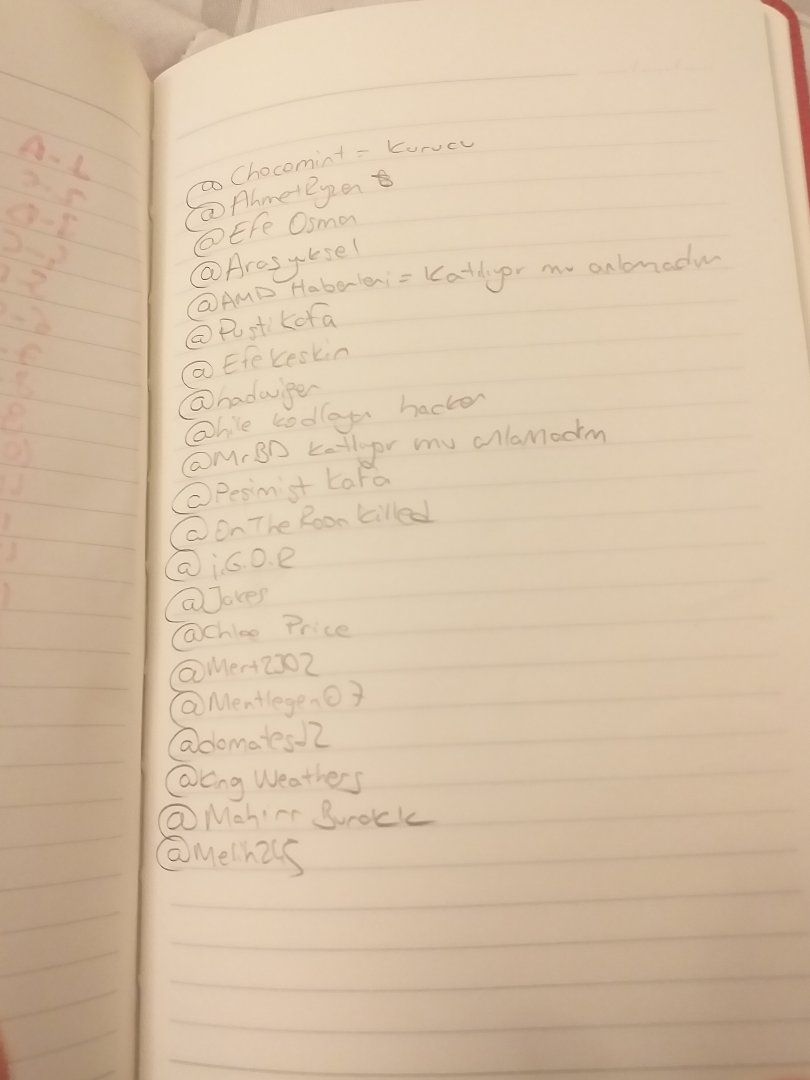 @Chocomint = Kurucu
@AhmetRyzen
@Efe Osman
@Arasyuksel
@AMD Haberleri = Katılıyor mu anlamadım
@Pustikafa
@Efekeskin
@hadwiger
@hile kodlayan hacker
@MrBD katılıyor mu anlamadım
@Pesimist kafa
@OnTheRoonkilled
@i.G.O.R
@Jokes
@Chloe Price
@Mert2302
@Mentlegen07
@domatesJ2
@King Weathers
@Mahirr Burakk
@Melih245
A-L